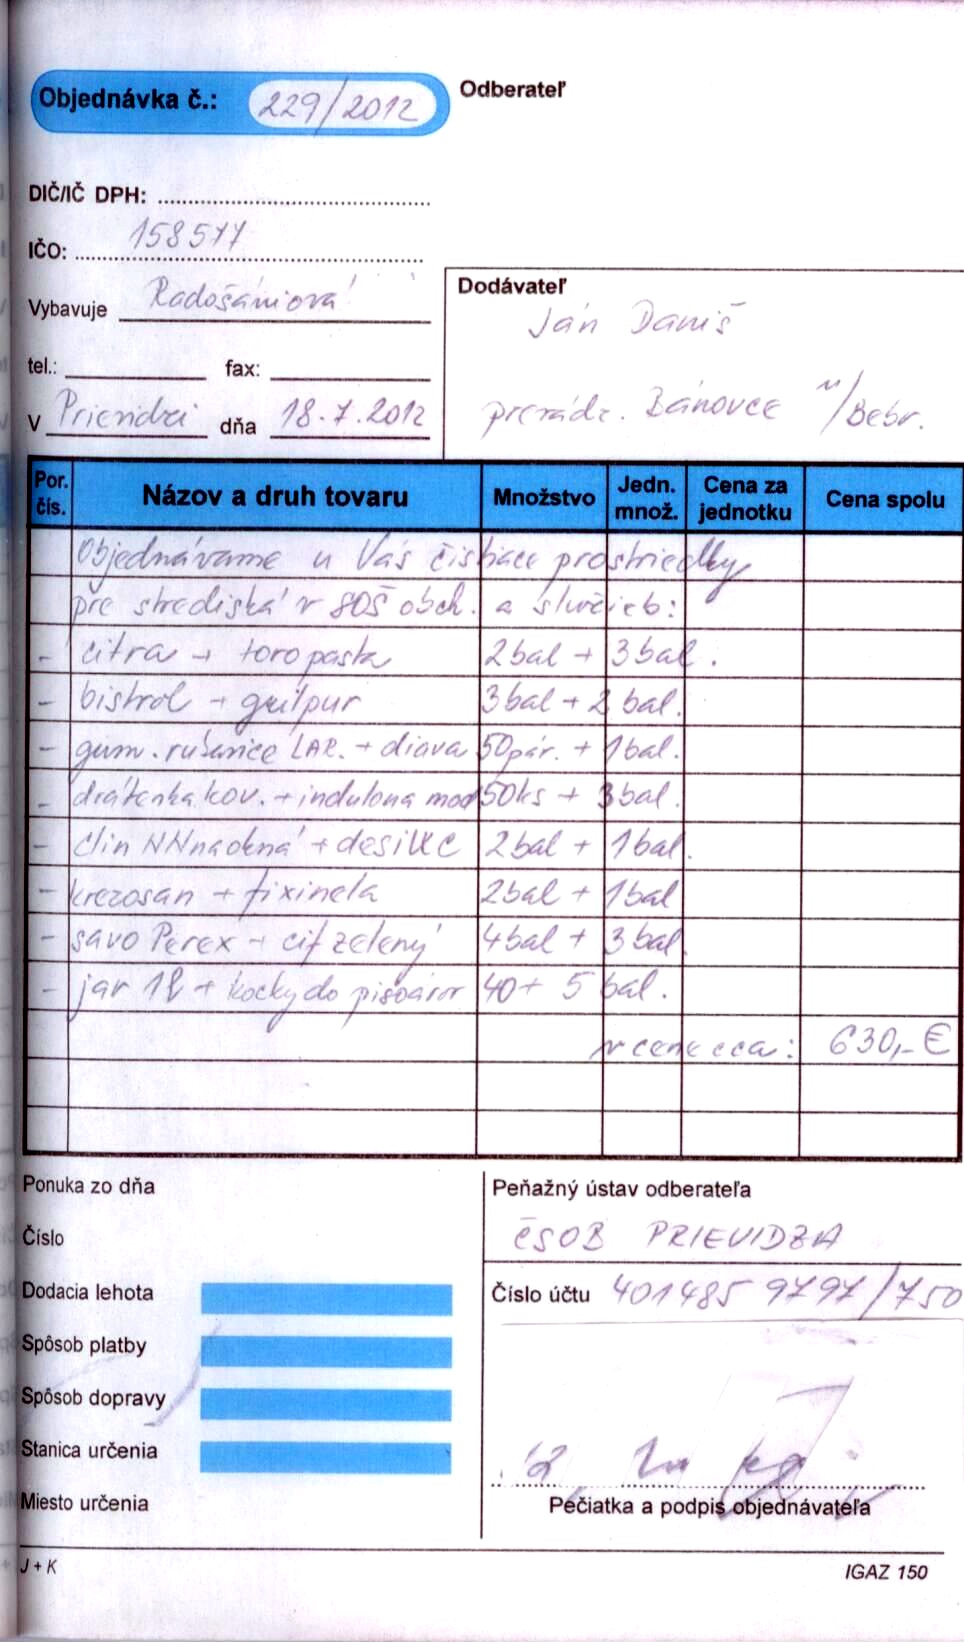 Objednávka č.: 229/2012
Odberateľ
DIČ/IČ DPH:
IČO: 158577
Vybavuje Radošániová
tel.: fax:
V Prievidzi dňa 18.7.2012
Dodávateľ
Ján Daniš
prevádz. Bánovce n/Bebr.
Por. čís. Názov a druh tovaru Množstvo Jedn. množ. Cena za jednotku Cena spolu
Objednávame u Vás čistiace prostriedky
pre strediská v SOŠ obch. a služieb:
- citra + toropasta 2bal + 3bal.
- bistrol + 3bal + 2 bal.
- gum. rukavice LAR. + diava 50pár. + 1bal.
- drátenka kov. + indulona mod 50ks + 3bal.
- clin NN na okná + desiWC 2bal + 1bal.
- krezosan + fixinela 2bal + 1bal
- savo Perex + cif zelený 4bal + 3bal
- jar 1l + kocky do pisoárov 40+ 5 bal.
v cene cca: 630,- €
Ponuka zo dňa
Číslo
Dodacia lehota
Spôsob platby
Spôsob dopravy
Stanica určenia
Miesto určenia
Peňažný ústav odberateľa
ČSOB PRIEVIDZA
Číslo účtu 4014859797/750
Pečiatka a podpis objednávateľa
J + K
IGAZ 150